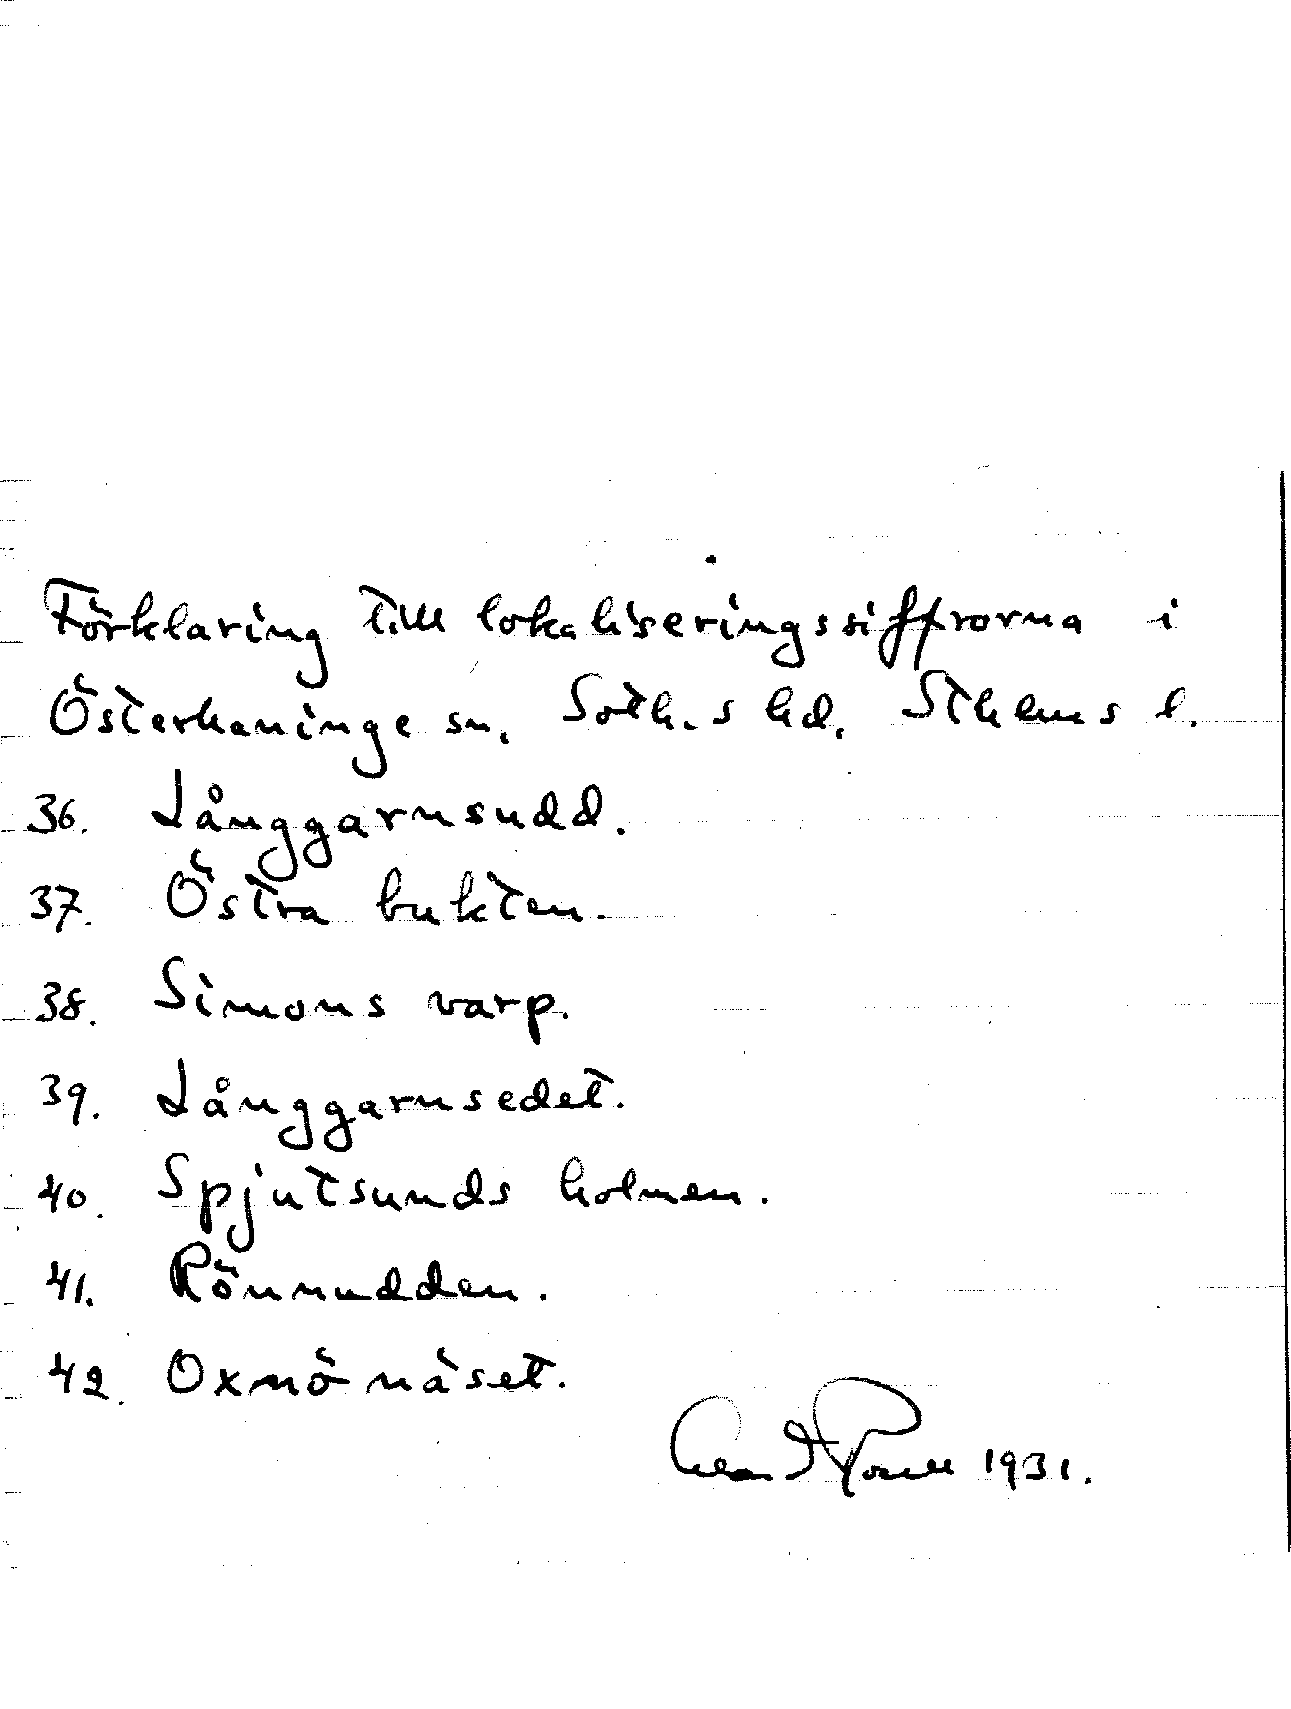 Förklaring till lokaliseringssiffrorna i
Österhaninge sn. Soth.s hd. Sthlms l.
36. Långgarnsudd.
37. Östra bukten.
38. Simons varp.
39. Långgarnsedet.
40. Spjutsunds holmen.
41. Rönnudden.
42. Oxnönäset.
1931.